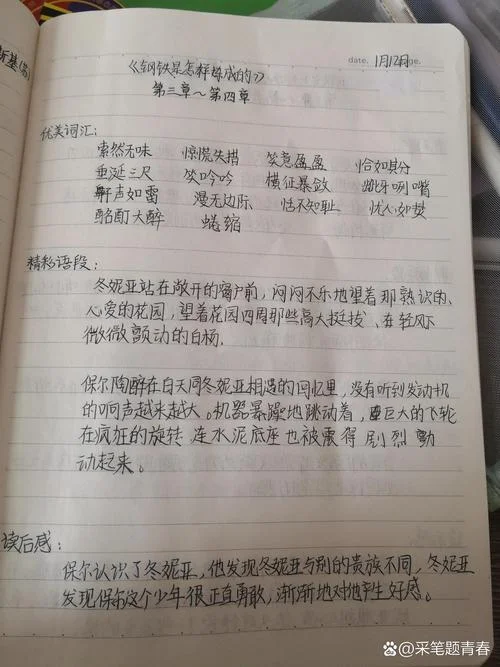 date. 1月12日ue.
《钢铁是怎样炼成的》
第三章～第四章
优美词汇:
索然无味 惊慌失措 笑意盈盈 恰如其分
垂涎三尺 笑吟吟 横征暴敛 龇牙咧嘴
鼾声如雷 漫无边际 恬不知耻 忧心如焚
酩酊大醉 蜷缩
精彩语段:
冬妮亚站在敞开的窗户前，闷闷不乐地望着那熟识的、
心爱的花园，望着花园四周那些高大挺拔、在轻风下
微微颤动的白杨.
保尔陶醉在白天同冬妮亚相遇的回忆里，没有听到发动机
的响声越来越大。机器暴躁地跳动着，巨大的飞轮
在疯狂的旋转 连水泥底座也被震得剧烈
动起来。
读后感:
保尔认识了冬妮亚，他发现冬妮亚与别的贵族不同，冬妮亚
发现保尔这个少年很正直勇敢，渐渐地对他产生好感。
@采笔题青春